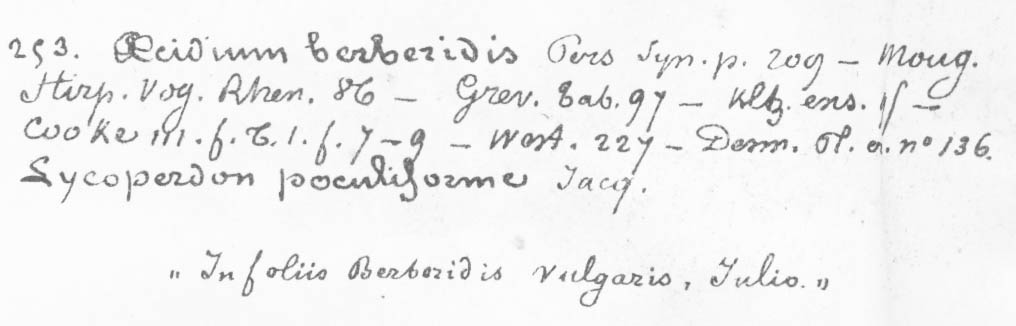 253. Æcidium berberidis Pers Syn. p. 209 – Moug.
Stirp. Vog. Rhen. 86 – Grev. tab. 97 – Kltz. ens. –
Cooke m. f. t. 1. f. 7–9 – West. 227 – Desm. Pl. a. nº 136.
Lycoperdon poculiforme Jacq.
„ In foliis Berberidis vulgaris, Julio. „